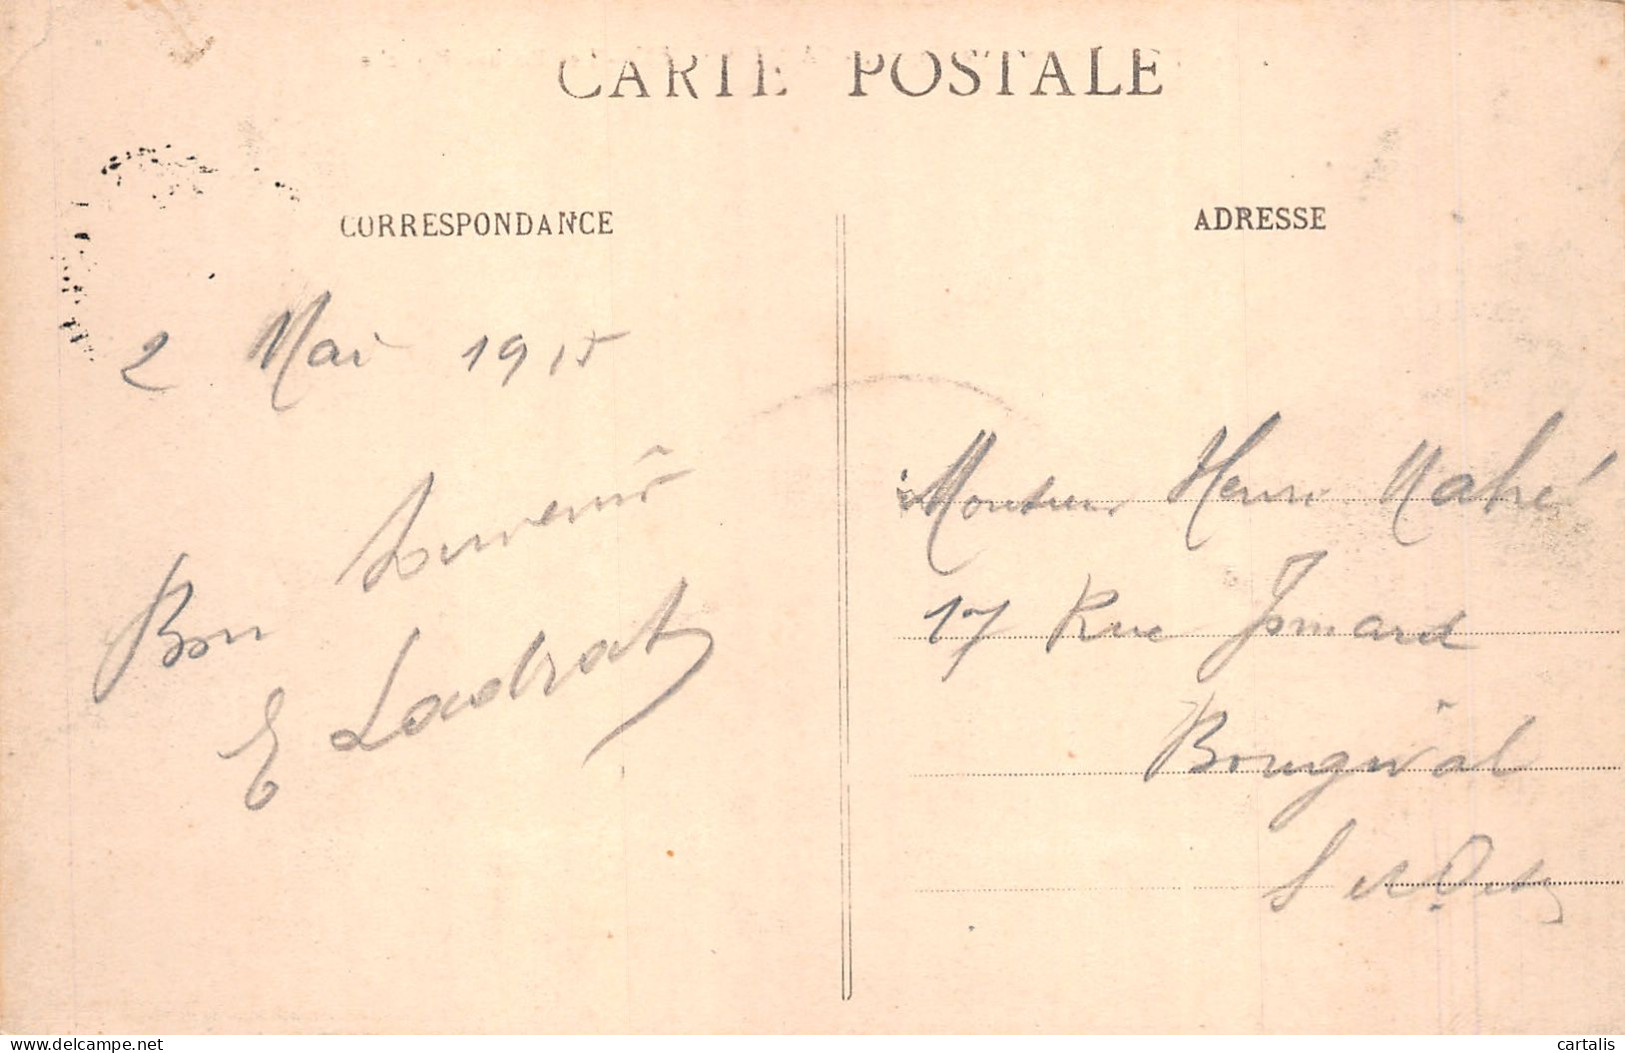 CARTE POSTALE
CORRESPONDANCE
2 Mai 1915
Bon Souvenir
E Ladrat
ADRESSE
Monsieur Henri Mahé
17 Rue Jomard
Bougival
S et Oise
cartalis
delcampe.net